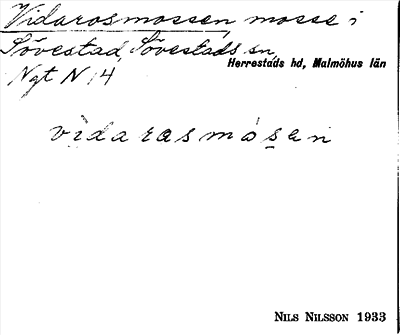 Vidarosmossen, mosse i
Sövestad, Sövestads sn,
Herrestads hd, Malmöhus län
Ngt N 14
vidarasmósen
NILS NILSSON 1933